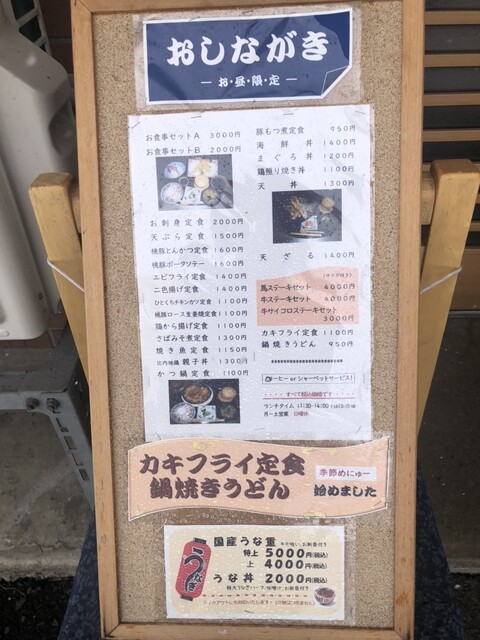 おしながき
― お・昼・限・定 ―
お食事セットA 3000円
お食事セットB 2000円
お刺身定食 2000円
天ぷら定食 1500円
桃豚とんかつ定食 1600円
桃豚ポークソテー 1600円
エビフライ定食 1400円
二色揚げ定食 1400円
ひとくちチキンカツ定食 1100円
桃豚ロース生姜焼定食 1100円
鶏から揚げ定食 1100円
さばみそ煮定食 1300円
焼き魚定食 1150円
比内地鶏 親子丼 1300円
かつ鍋定食 1100円
豚もつ煮定食 950円
海鮮丼 1400円
まぐろ丼 1200円
鶏照り焼き丼 1100円
天丼 1300円
天ざる 1400円
馬ステーキセット 4000円
牛ステーキセット 4000円
牛サイコロステーキセット
3000円
カキフライ定食 1100円
鍋焼きうどん 950円
コーヒー or シャーベットサービス!
すべて税込価格です
ランチタイム 11:30-14:00
月～土営業 日曜休
カキフライ定食
鍋焼きうどん
季節めにゅー
始めました
うなぎ
国産うな重 キモ吸い、お新香付き
特上 5000円(税込)
上 4000円(税込)
うな丼 2000円(税込)